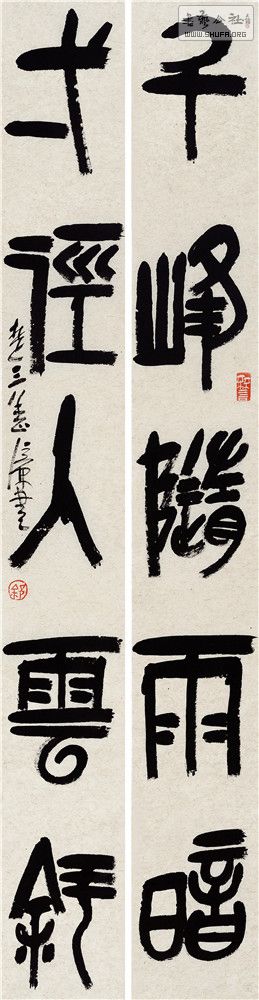 千峰隨雨暗
弌徑入雲斜
书法公社
WWW.SHUFA.ORG